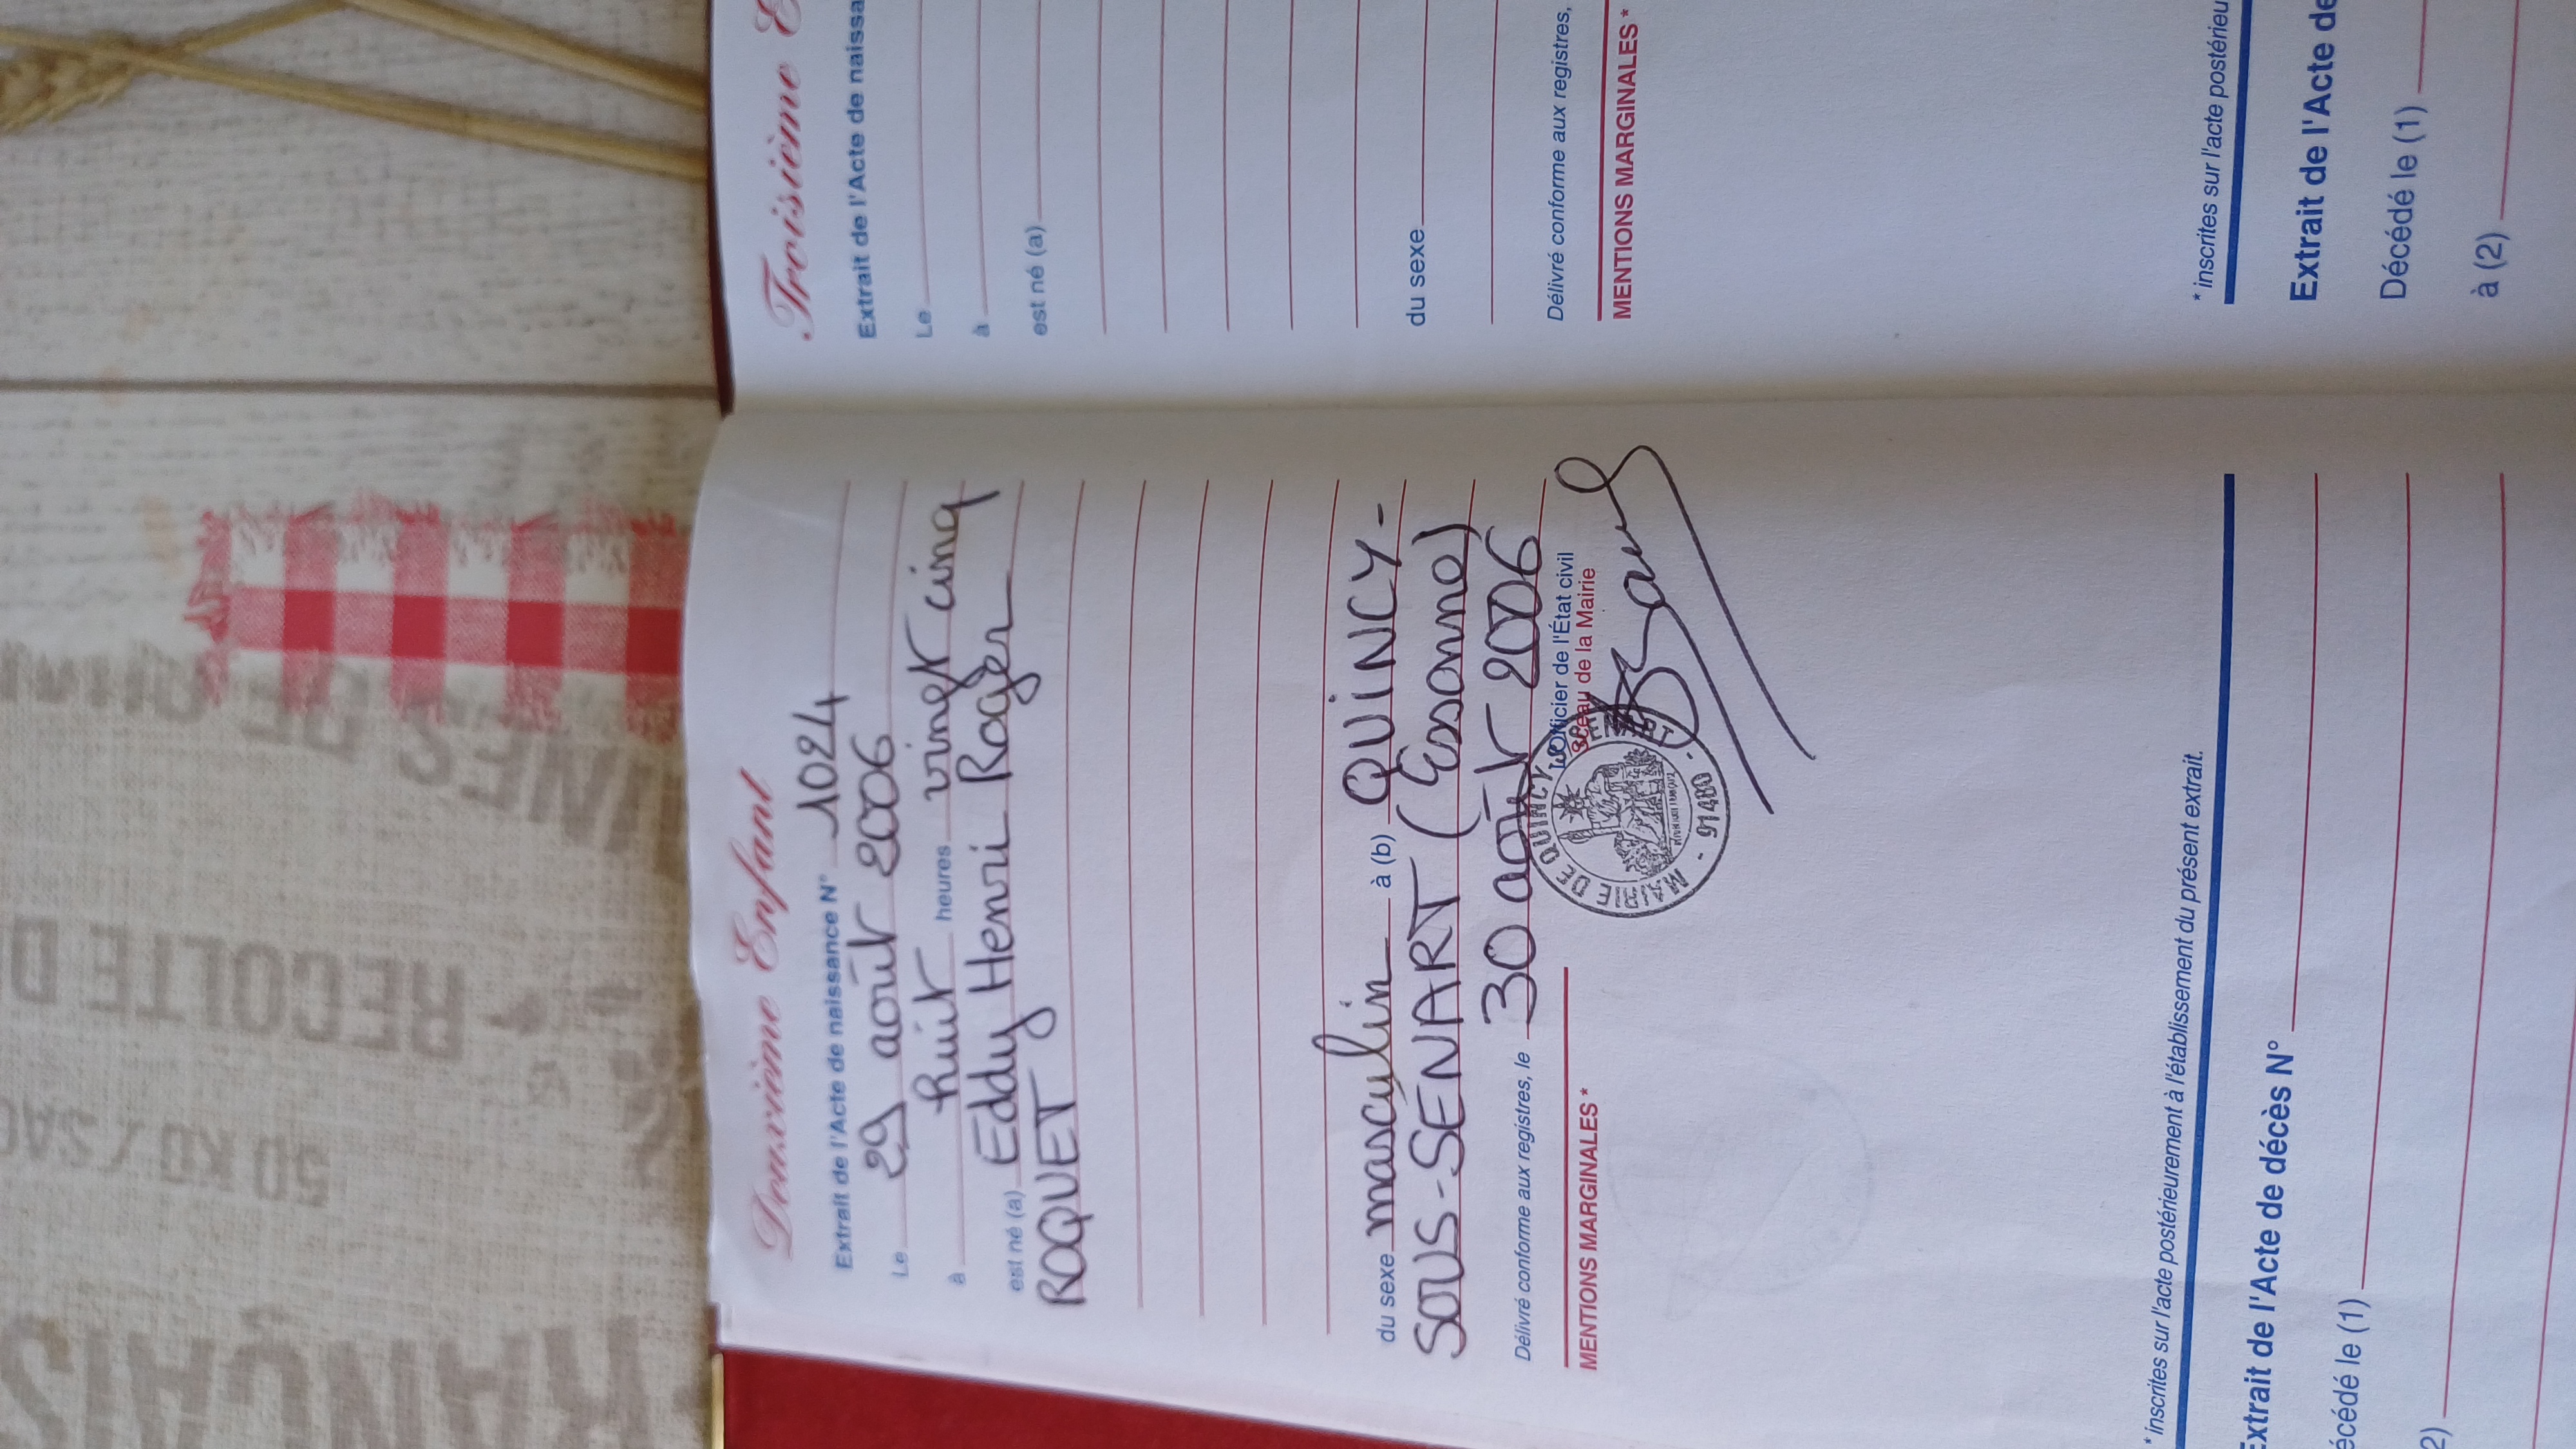 Deuxième Enfant
Extrait de l'Acte de naissance N° 1024
Le 29 août 2006
à huit heures vingt cinq
est né (a) Eddy Henri Roger
ROQUET
du sexe masculin à (b) QUINCY-
SOUS-SENART (Essonne)
Délivré conforme aux registres, le 30 août 2006
L'Officier de l'État civil
Sceau de la Mairie
MAIRIE DE QUINCY SOUS SENART
- 91480 -
MENTIONS MARGINALES *
* inscrites sur l'acte postérieurement à l'établissement du présent extrait.
Extrait de l'Acte de décès N°
écédé le (1)
2)
Troisième E
Extrait de l'Acte de naissa
Le
à
est né (a)
du sexe
Délivré conforme aux registres,
MENTIONS MARGINALES *
* inscrites sur l'acte postérieu
Extrait de l'Acte de
Décédé le (1)
à (2)
RECOLTE D
50 KG / SAC